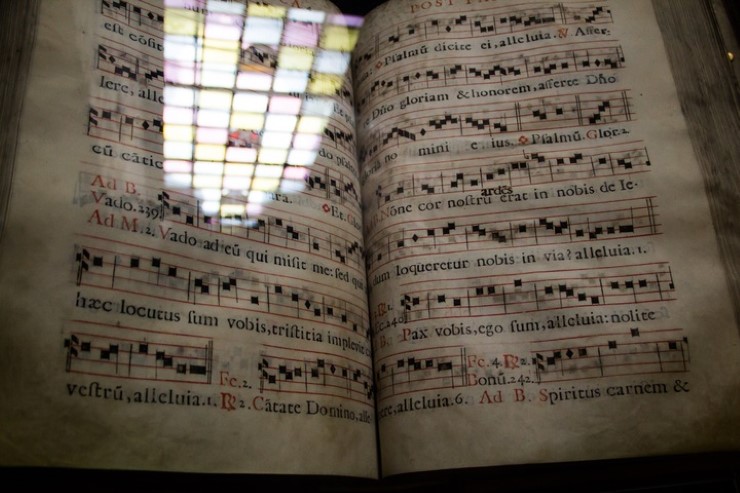 CA.
est cōsit
lere, alle
cū cātic
ara. Fe.
Ad B.
Vado. 239.
Ad M. 2. Vado ad eū qui misit me: sed quia
hæc locutus sum vobis, tristitia implevit c
vestrū, alleluia. 1. ℟ 2. Cātate Domino, alle
Fe. 2.
POST PA
Psalmū dicite ei, alleluia. ℣ Affer-
te Dño gloriam & honorem, afferte Dño
no mini e ius. Psalmū. Glo. 2.
ardēs
℟. Nōne cor nostrū erat in nobis de Ie-
sum loqueretur nobis in via? alleluia. 1.
Fe. 240
B. Pax vobis, ego sum, alleluia: nolite
Fe. 4. ℟ 2.
Bonū. 242.
re, alleluia. 6. Ad B. Spiritus carnem &